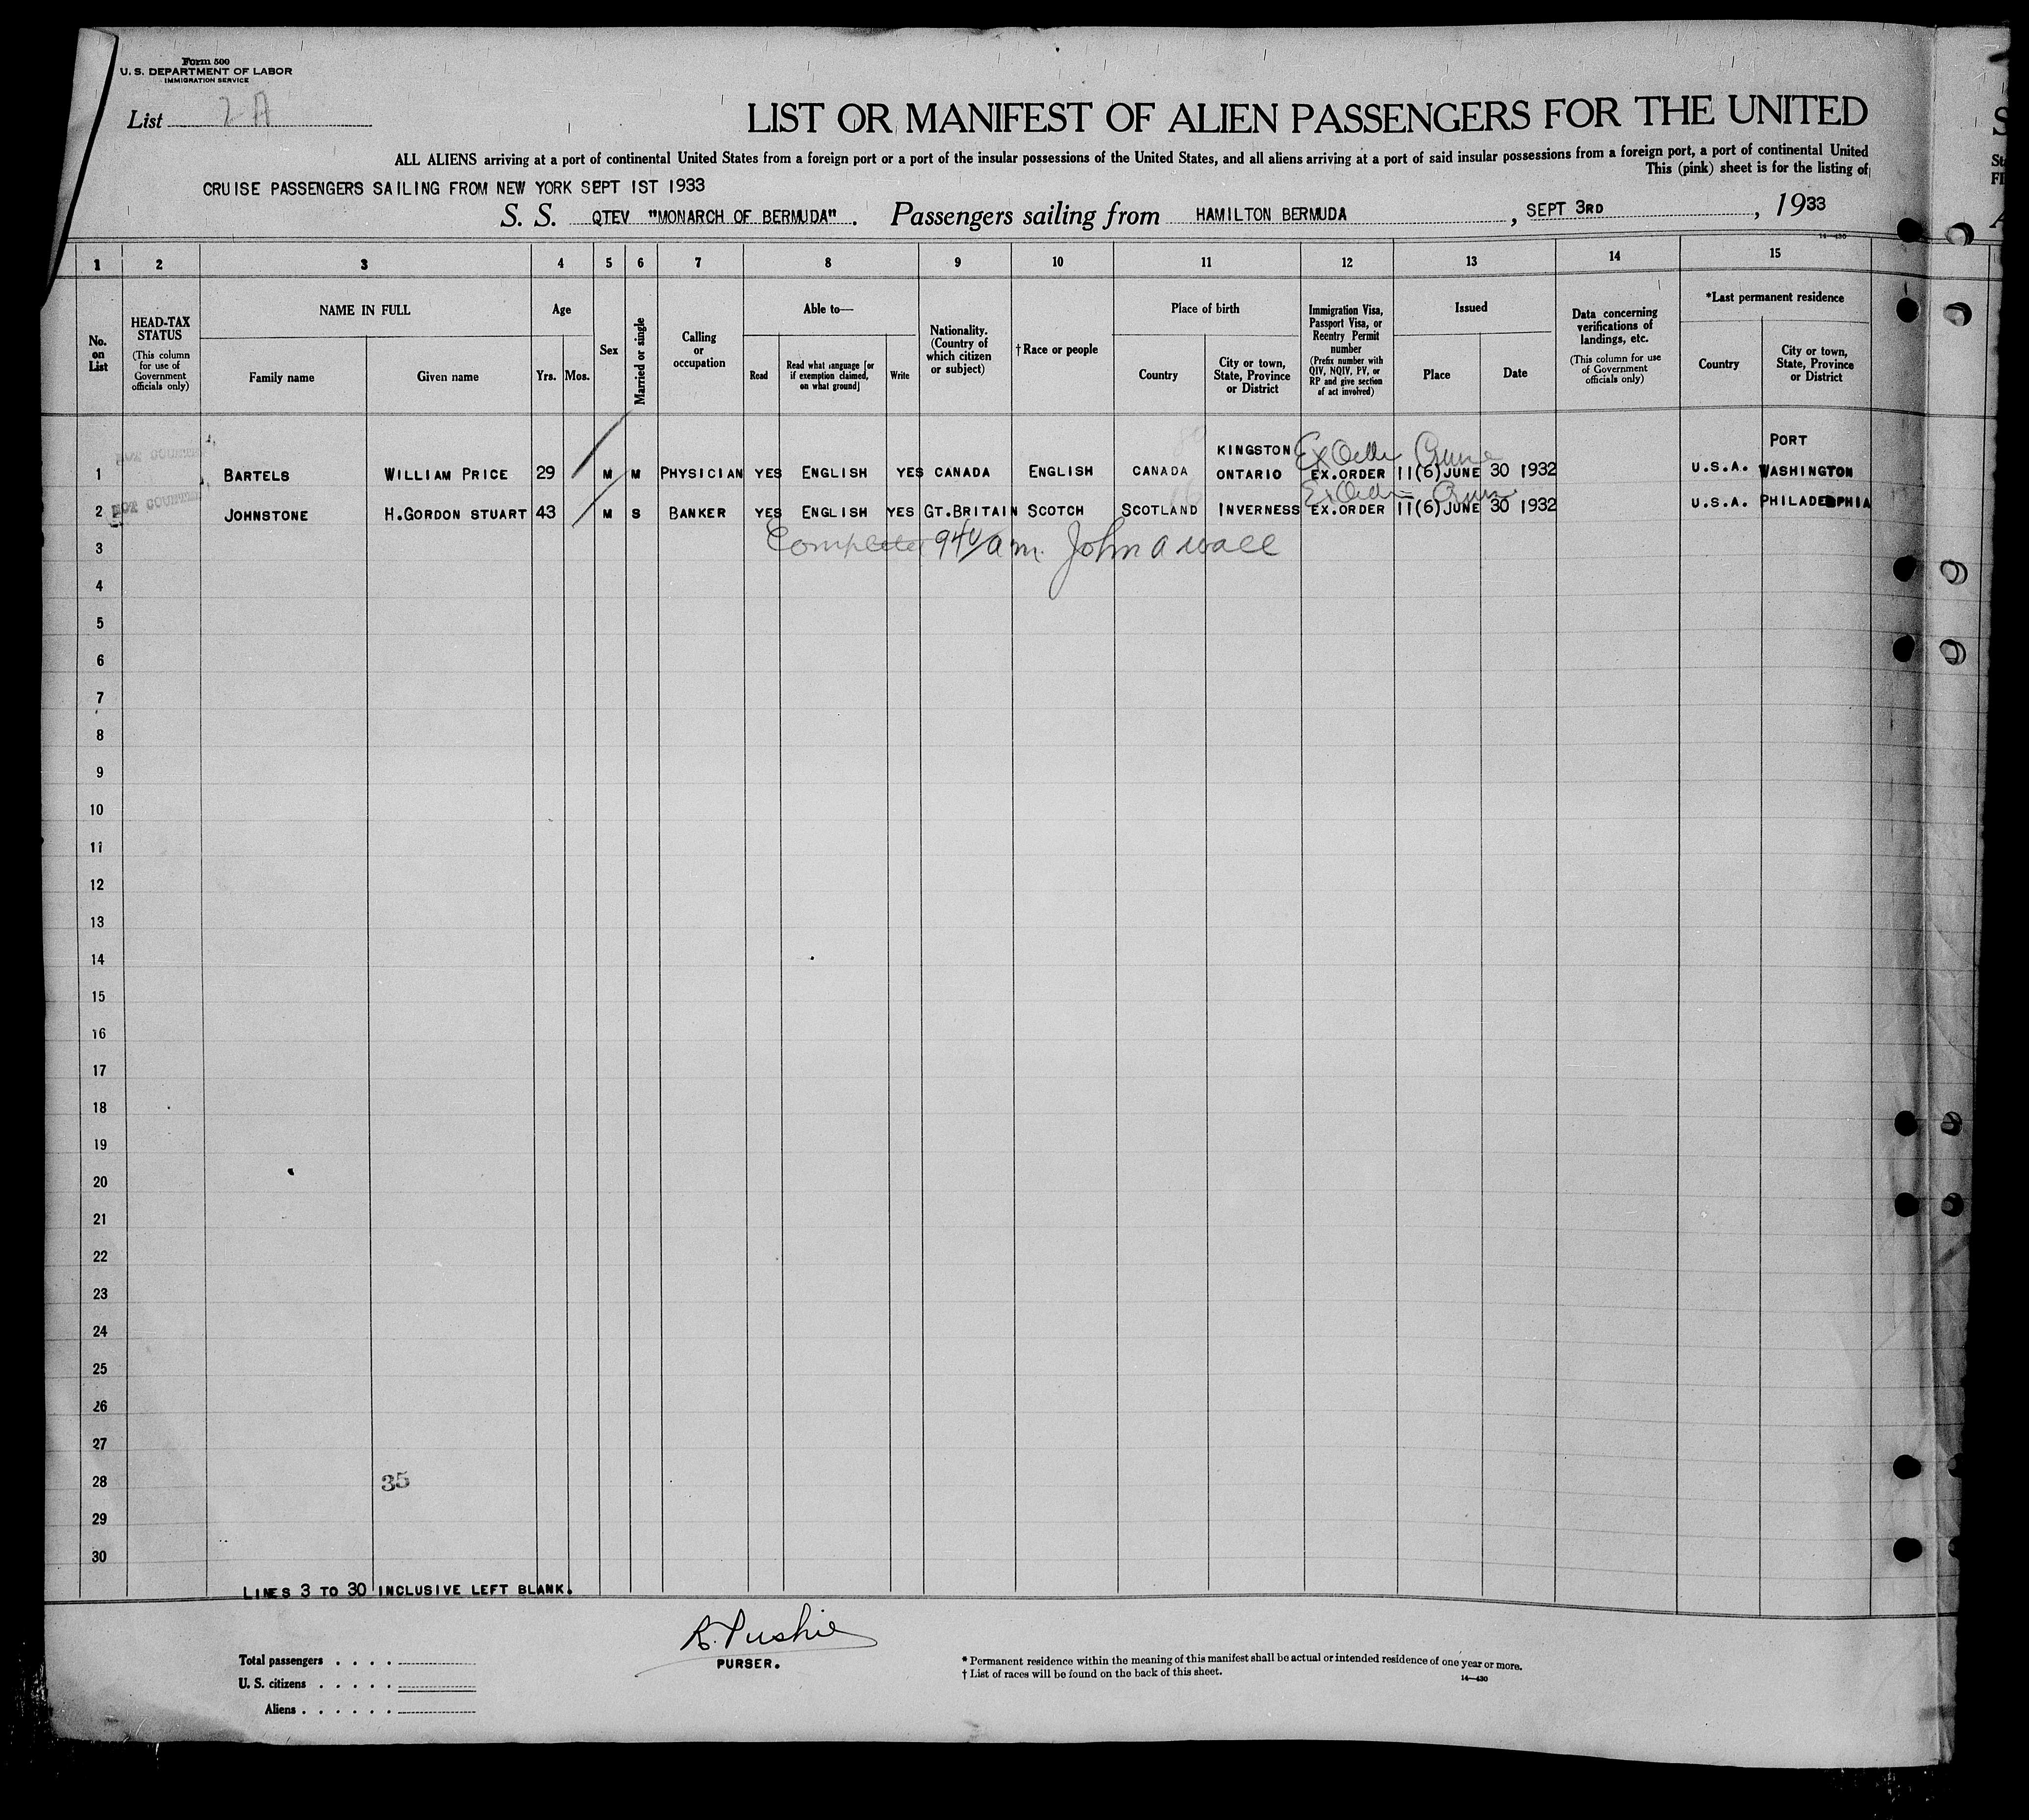 Form 500
U. S. DEPARTMENT OF LABOR
IMMIGRATION SERVICE
List 2 A
LIST OR MANIFEST OF ALIEN PASSENGERS FOR THE UNITED
ALL ALIENS arriving at a port of continental United States from a foreign port or a port of the insular possessions of the United States, and all aliens arriving at a port of said insular possessions from a foreign port, a port of continental United
This (pink) sheet is for the listing of
CRUISE PASSENGERS SAILING FROM NEW YORK SEPT 1ST 1933
S. S. QTEV "MONARCH OF BERMUDA". Passengers sailing from HAMILTON BERMUDA, SEPT 3RD, 1933
14—430
1 2 3 4 5 6 7 8 9 10 11 12 13 14 15
No. on List
HEAD-TAX STATUS (This column for use of Government officials only)
NAME IN FULL
Family name
Given name
Age
Yrs. Mos.
Sex
Married or single
Calling or occupation
Able to—
Read
Read what language [or if exemption claimed, on what ground]
Write
Nationality. (Country of which citizen or subject)
†Race or people
Place of birth
Country
City or town, State, Province or District
Immigration Visa, Passport Visa, or Reentry Permit number (Prefix number with QIV, NQIV, PV, or RP and give section of act involved)
Issued
Place
Date
Data concerning verifications of landings, etc. (This column for use of Government officials only)
*Last permanent residence
Country
City or town, State, Province or District
NOT COUNTED
KINGSTON Ex Order Cruise PORT
1 BARTELS WILLIAM PRICE 29 M M PHYSICIAN YES ENGLISH YES CANADA ENGLISH CANADA ONTARIO EX.ORDER 11(6)JUNE 30 1932 U.S.A. WASHINGTON
NOT COUNTED
Ex Order Cruise
2 JOHNSTONE H.GORDON STUART 43 M S BANKER YES ENGLISH YES GT.BRITAIN SCOTCH SCOTLAND INVERNESS EX.ORDER 11(6)JUNE 30 1932 U.S.A. PHILADEPHIA
3 Completed 940 a m. John A Wall
4
5
6
7
8
9
10
11
12
13
14
15
16
17
18
19
20
21
22
23
24
25
26
27
28 35
29
30
LINES 3 TO 30 INCLUSIVE LEFT BLANK.
R. Pushie
PURSER.
Total passengers . . . .
U. S. citizens . . . . .
Aliens . . . . . .
* Permanent residence within the meaning of this manifest shall be actual or intended residence of one year or more.
† List of races will be found on the back of this sheet.
14—430